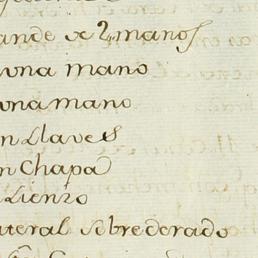 ande de 2 manos
una mano
una mano
n Llaves
n Chapa
Lienzo
ateral sobredorado